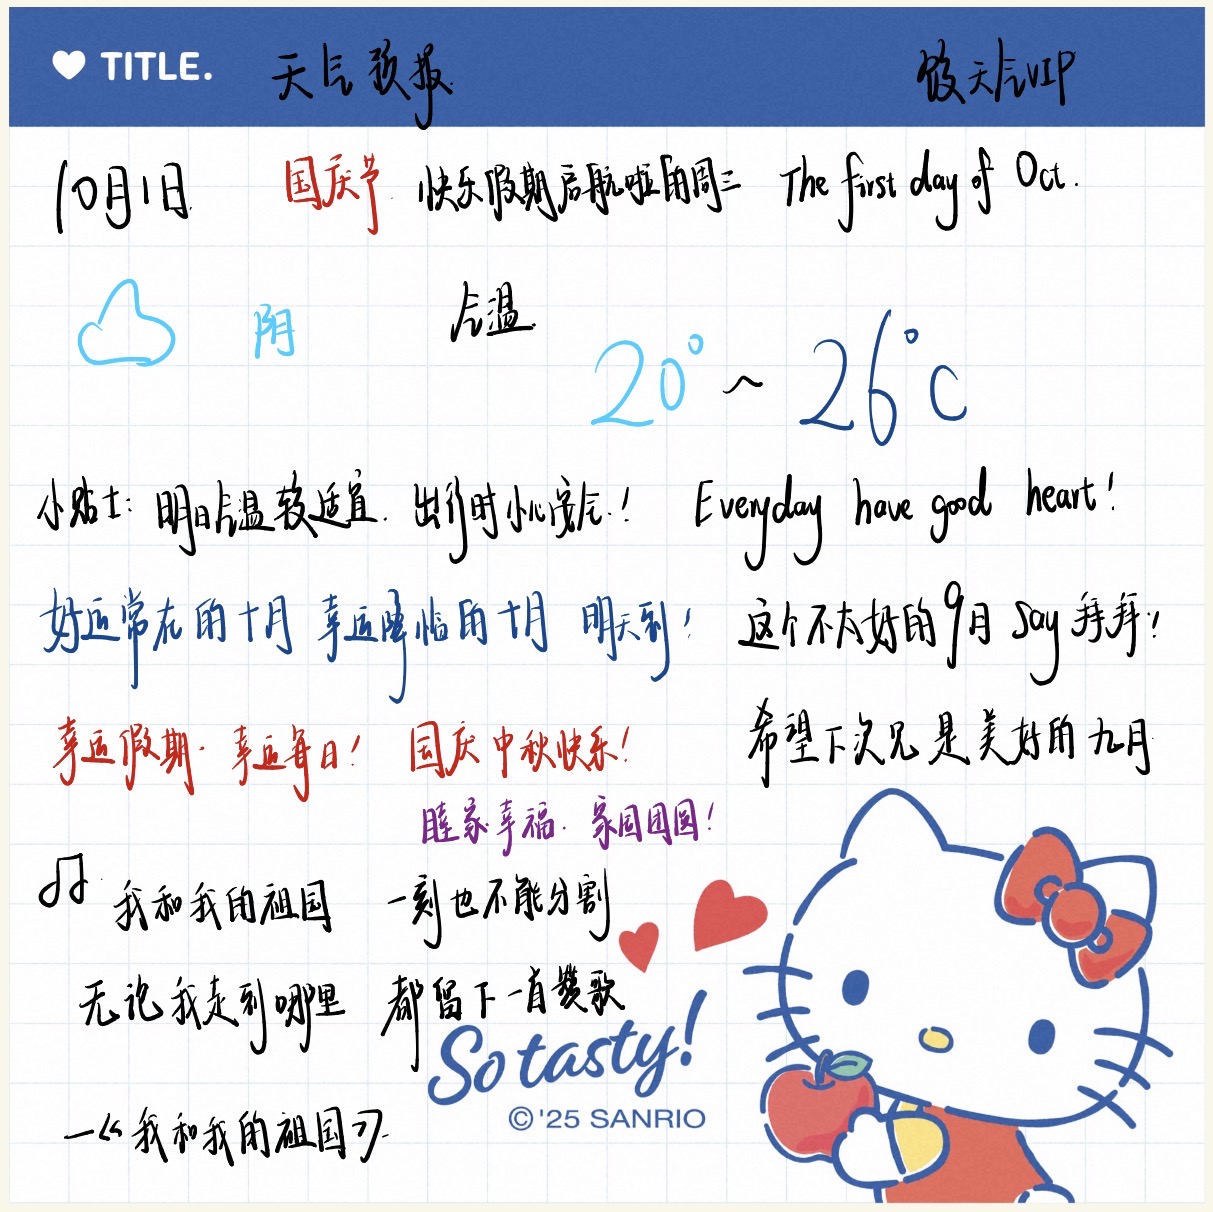 TITLE. 天气预报 天气VIP
10月1日 国庆节 快乐假期启航啦的周三 The first day of Oct.
阴 气温 20°~26°C
小贴士: 明日气温较适宜. 出行时小心安全.! Everyday have good heart!
好运常在的十月 幸运降临的十月 明天到! 这个不太好的9月 Say 拜拜!!
希望下次见是美好的九月
幸运假期. 幸运每日! 国庆中秋快乐!
家幸福. 家国团圆!
我和我的祖国 一刻也不能分割
无论我走到哪里 都留下一首赞歌
So tasty!
© '25 SANRIO
—《我和我的祖国》